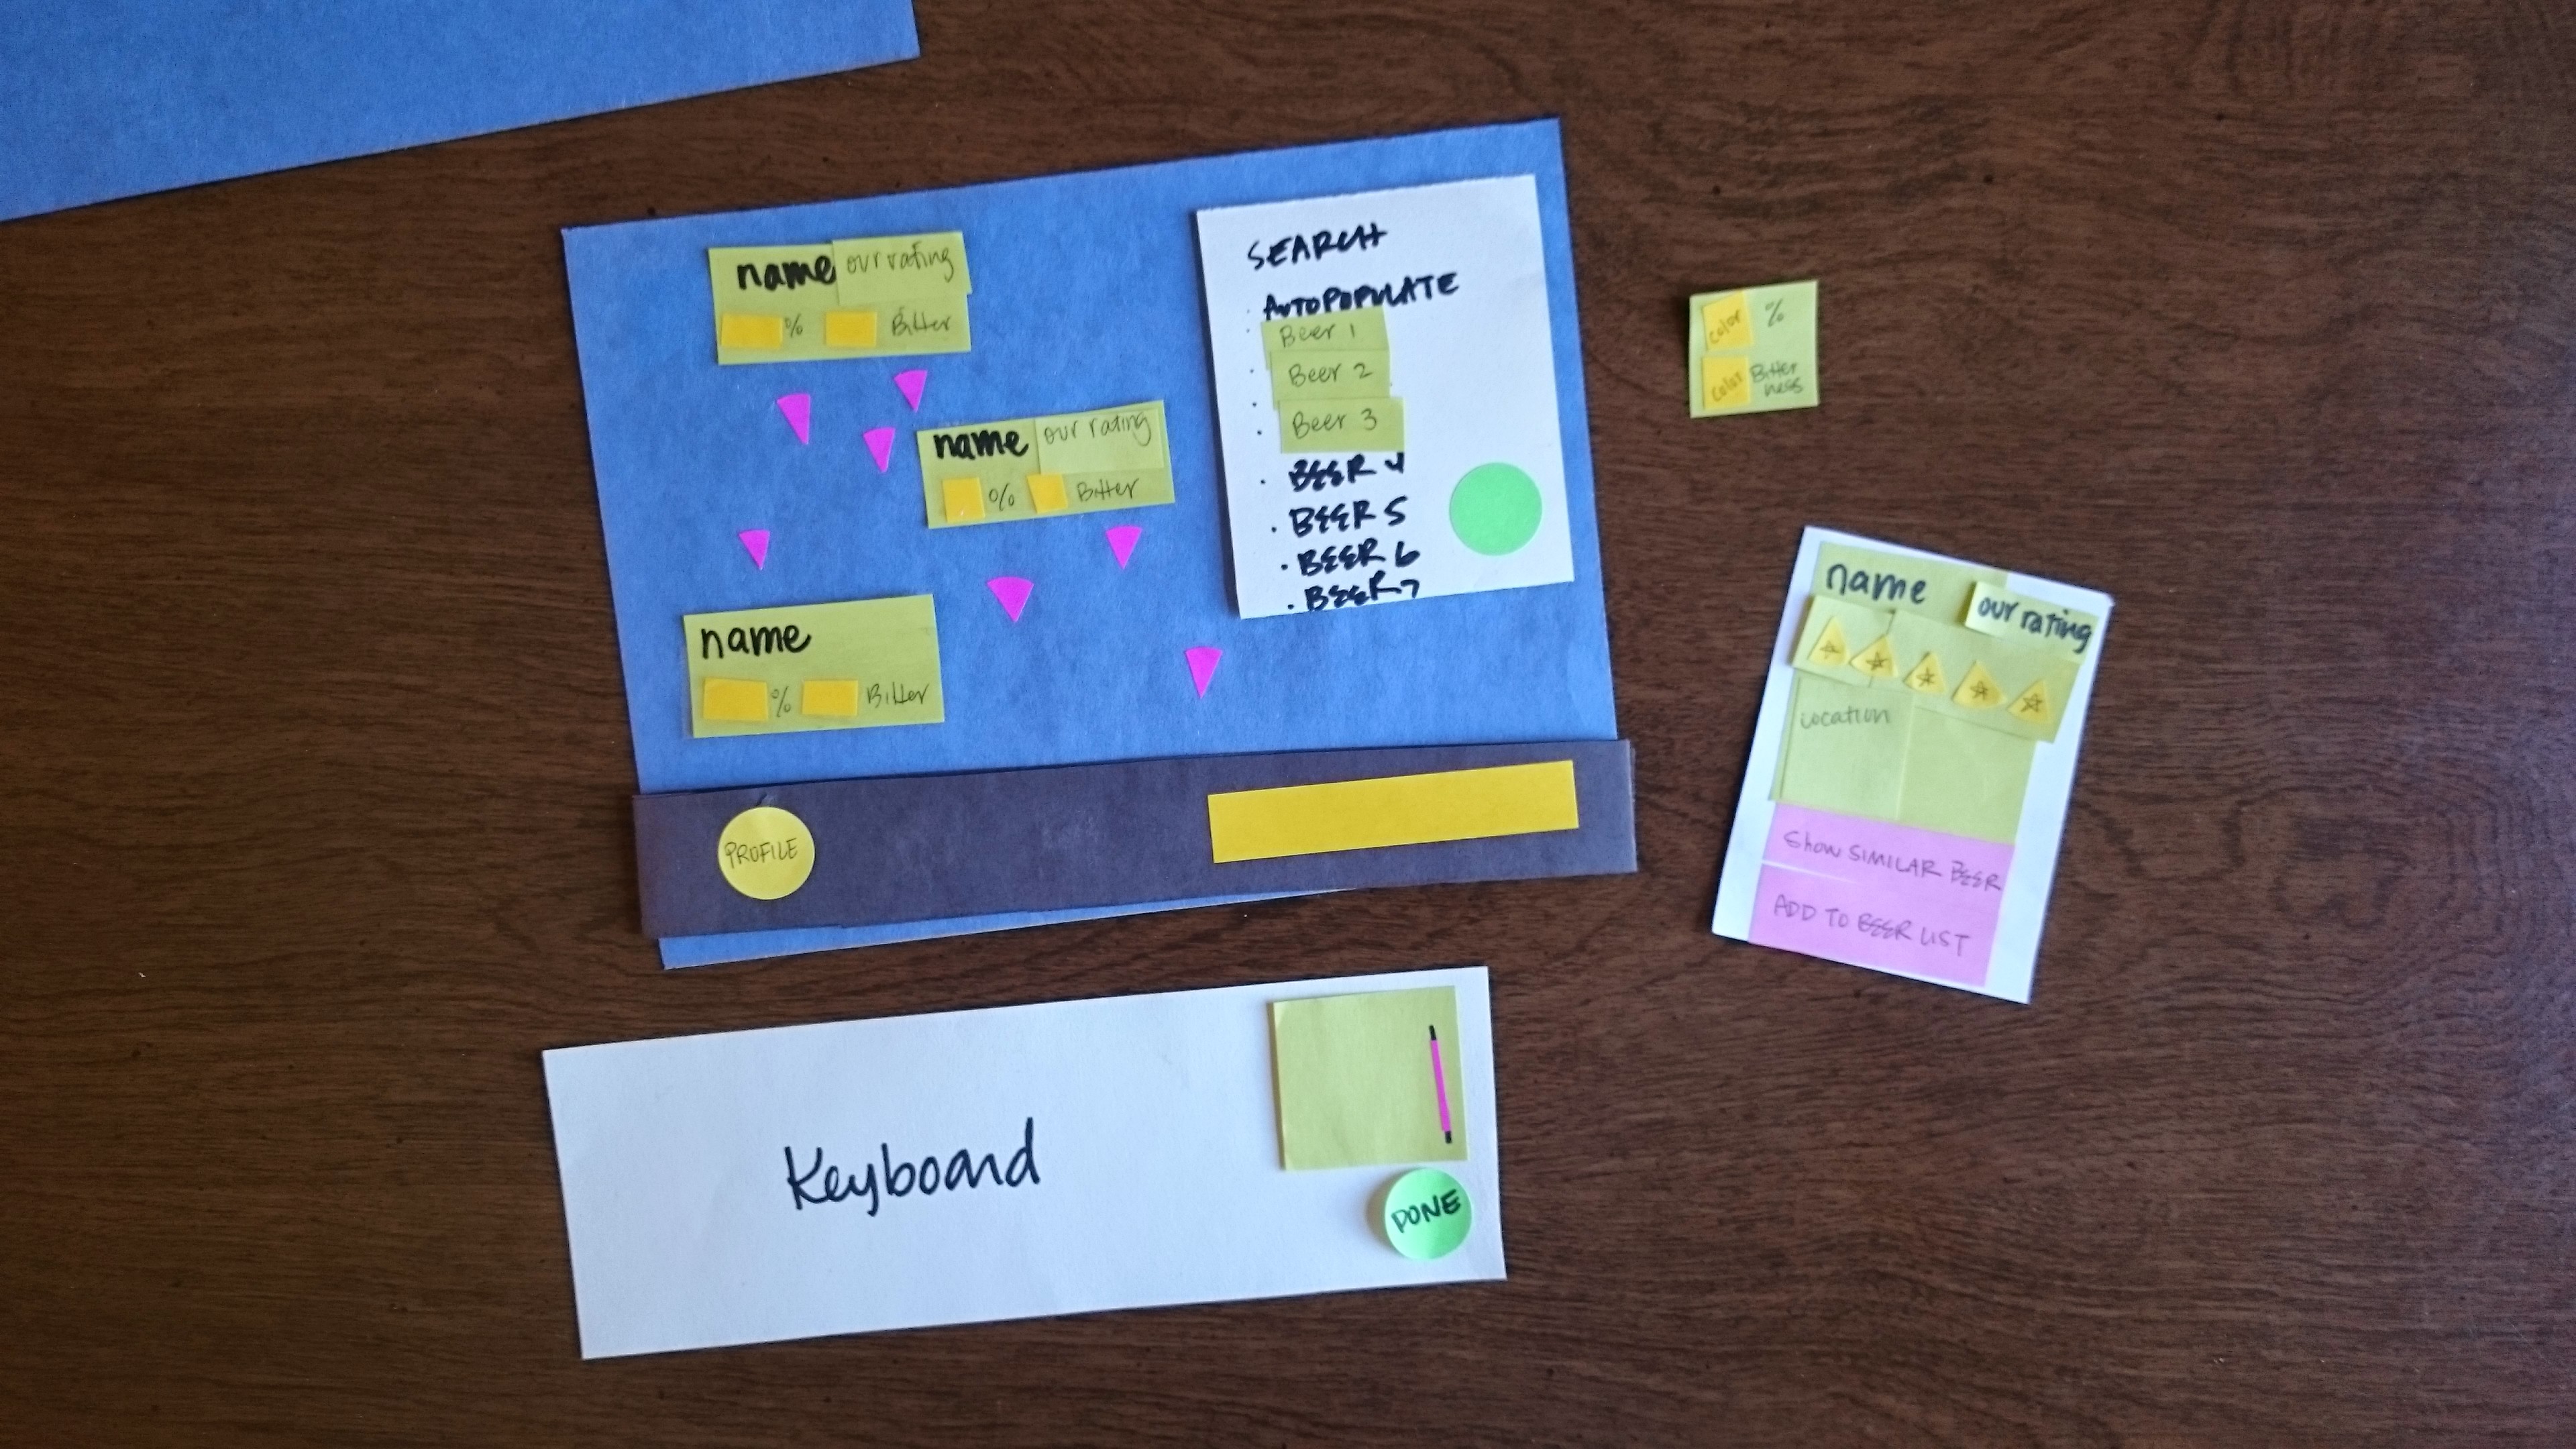 name our rating
% Bitter
name our rating
% Bitter
name
% Bitter
SEARCH
AUTOPOPULATE
Beer 1
Beer 2
Beer 3
BEER 4
BEER 5
BEER 6
BEER 7
PROFILE
color %
color Bitter
ness
name
our rating
Location
Show SIMILAR BEER
ADD TO BEER LIST
Keyboard
DONE